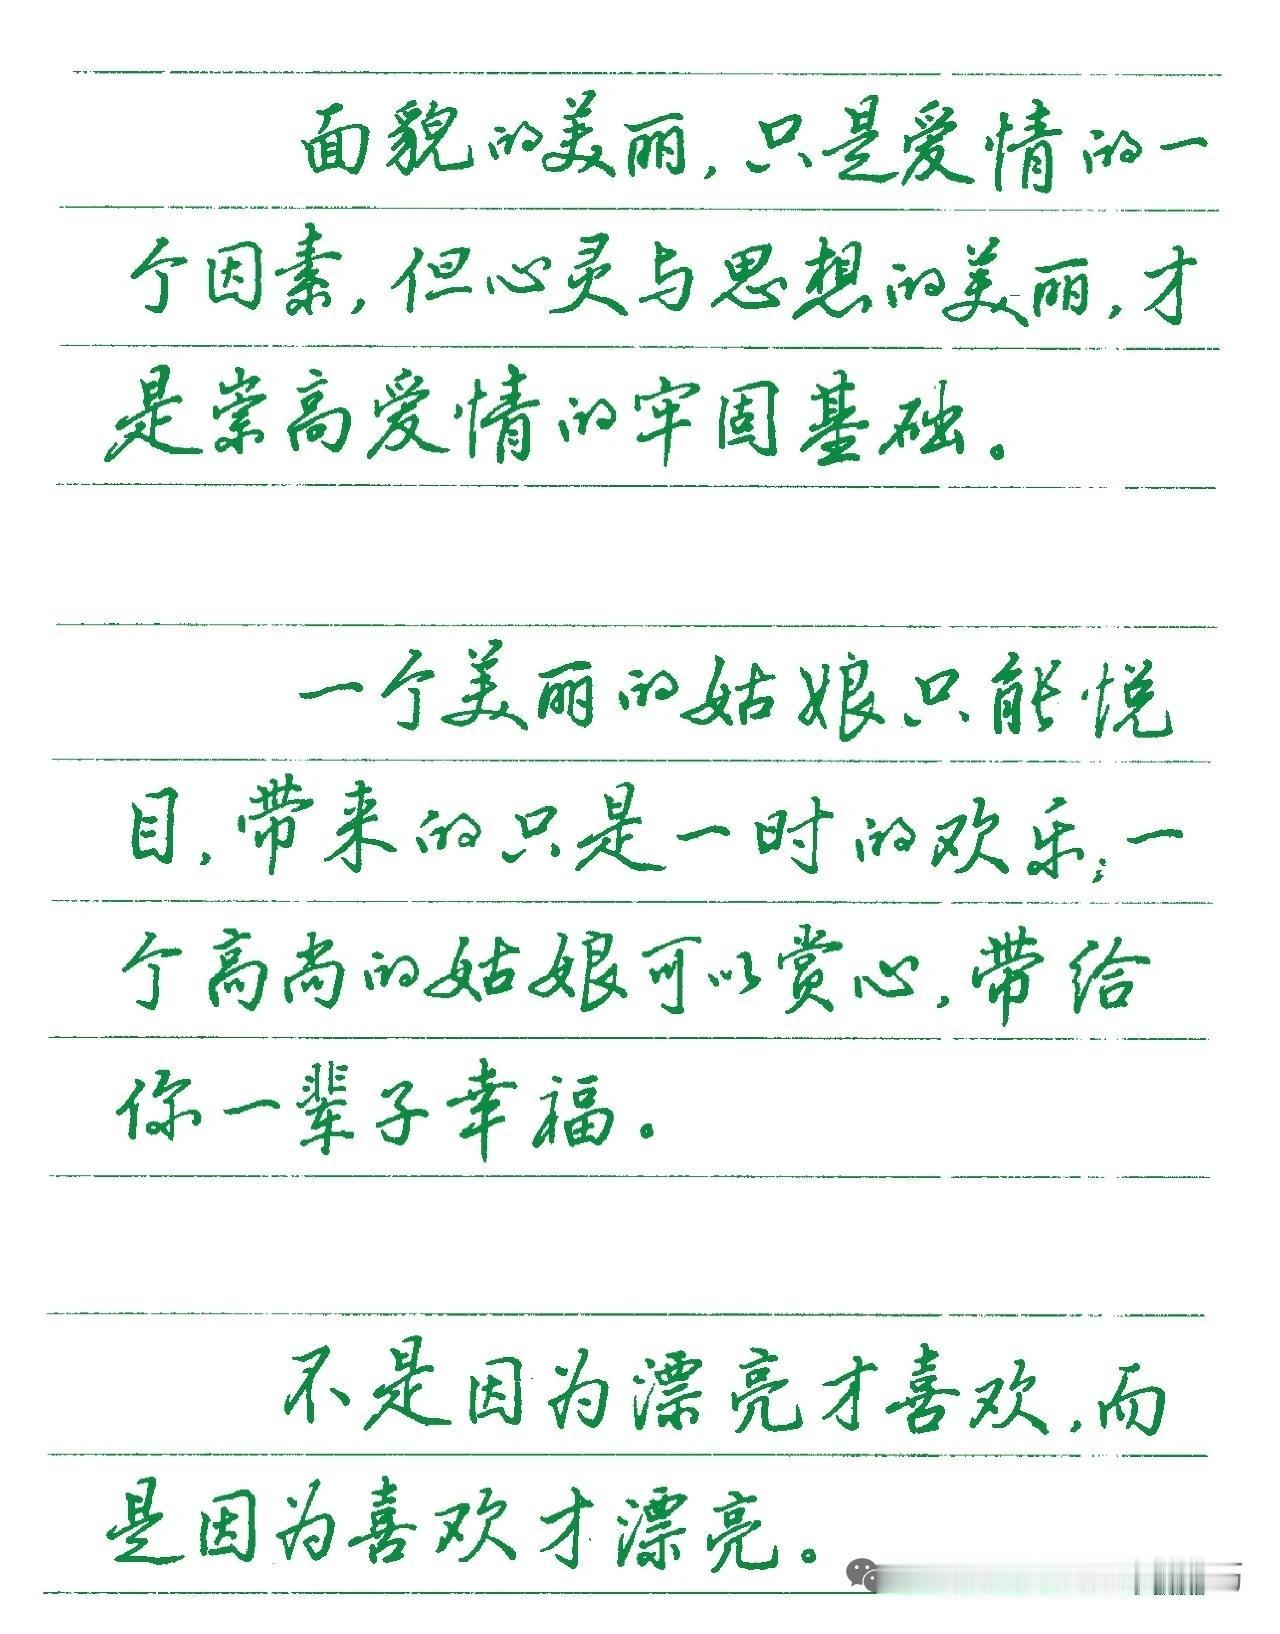 面貌的美丽，只是爱情的一
个因素，但心灵与思想的美丽，才
是崇高爱情的牢固基础。
一个美丽的姑娘只能悦
目，带来的只是一时的欢乐；一
个高尚的姑娘可以赏心，带给
你一辈子幸福。
不是因为漂亮才喜欢，而
是因为喜欢才漂亮。